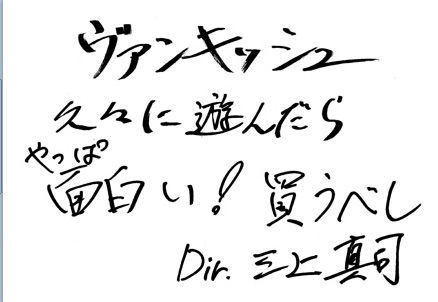 ヴァンキッシュ
久々に遊んだら
やっぱ
面白い！買うべし
Dir. 三上真司